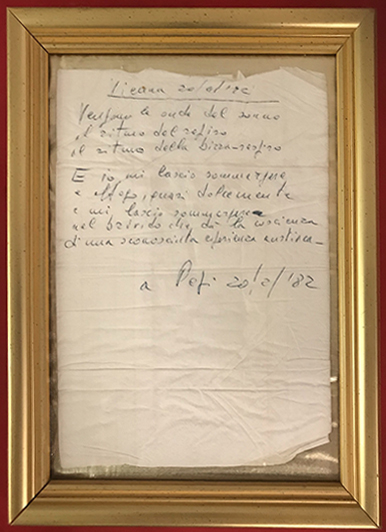 20/2/'82
Vengono le onde del sonno
il ritmo del respiro
il ritmo della respiro
E io mi lascio sommergere
e quasi dolcemente
e mi lascio sommergere
nel che dà la coscienza
di una sconosciuta esperienza
a 20/2/'82